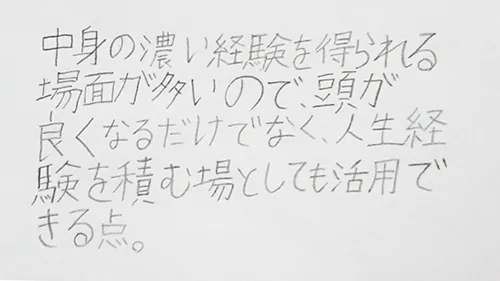 中身の濃い経験を得られる
場面が多いので、頭が
良くなるだけでなく、人生経
験を積む場としても活用で
きる点。